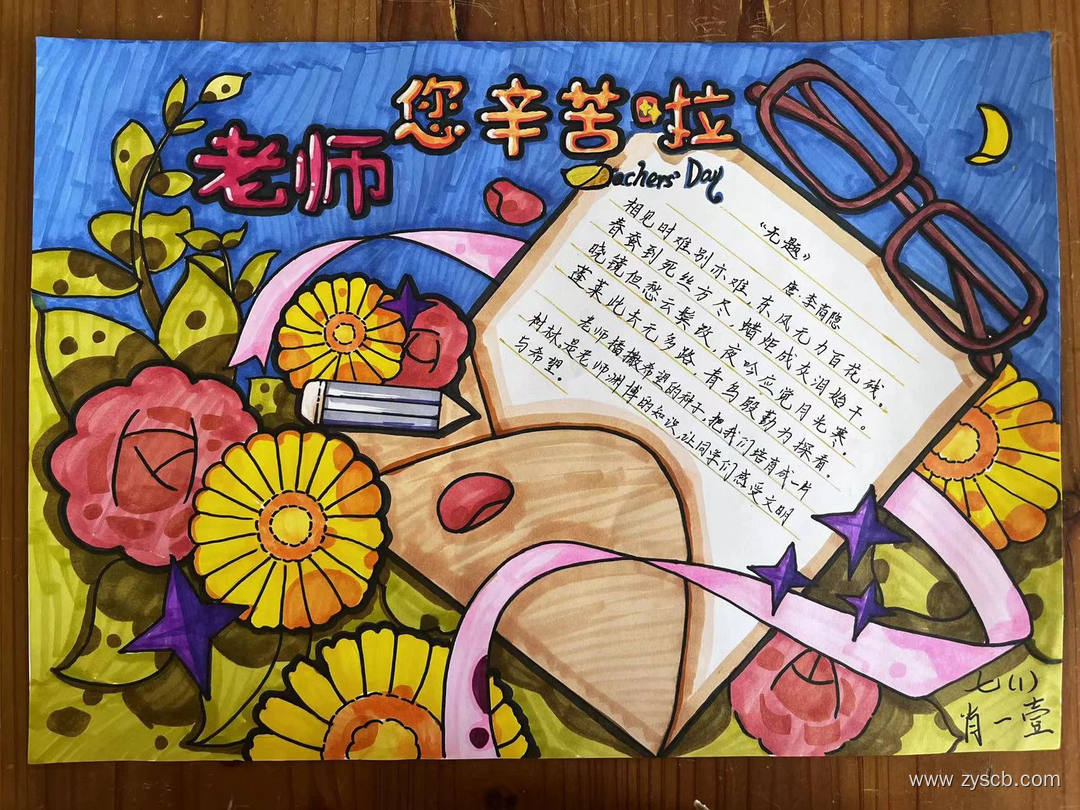 老师您辛苦啦
Teachers' Day
《无题》
唐·李商隐
相见时难别亦难,东风无力百花残。
春蚕到死丝方尽,蜡炬成灰泪始干。
晓镜但愁云鬓改,夜吟应觉月光寒。
蓬莱此去无多路,青鸟殷勤为探看。
老师播撒希望的种子,把我们培育成一片
树林,是老师渊博的知识,让同学们感受文明
与希望。
七(1)
肖一壹
www.zyscb.com